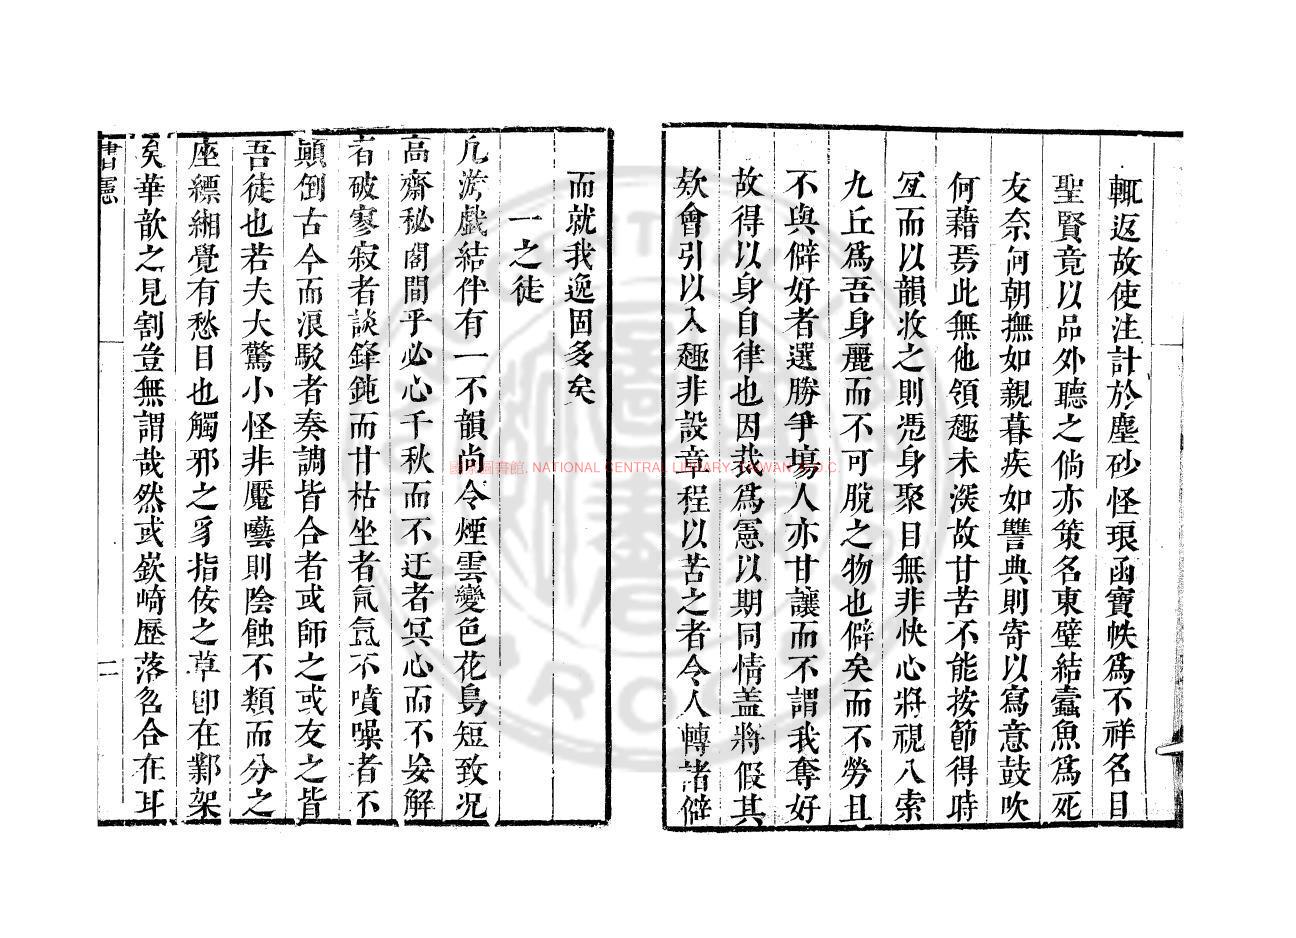 輒返故使注計於塵砂怪琅函寶帙爲不祥名目
聖賢竟以品外聽之倘亦策名東壁結蠹魚爲死
友奈何朝撫如親暮疾如讐典則寄以寫意鼓吹
何藉焉此無他領趣未深故甘苦不能按節得時
宜而以韻收之則憑身聚目無非快心將視八索
九丘爲吾身麗而不可脫之物也僻矣而不勞且
不與僻好者選勝爭塲人亦甘讓而不謂我奪好
故得以身自律也因裁爲憲以期同情盖將假其
欵會引以入趣非設章程以苦之者令人轉諸僻
而就我逸固多矣
一之徒
凡遊戲結伴有一不韻尚令煙雲變色花鳥短致况
高齋秘閣間乎必心千秋而不迂者冥心而不妄解
者破寥寂者談鋒鈍而甘枯坐者氣氤不噴噪者不
顛倒古今而浪駁者奏調皆合者或師之或友之皆
吾徒也若夫大驚小怪非魘囈則陰蝕不類而分之
座縹緗覺有愁目也觸邪之豸指佞之草卽在鄴架
矣華歆之見割豈無謂哉然或嶔崎歷落名合在耳
書憲
二
國家圖書館, NATIONAL CENTRAL LIBRARY, TAIWAN, R.O.C